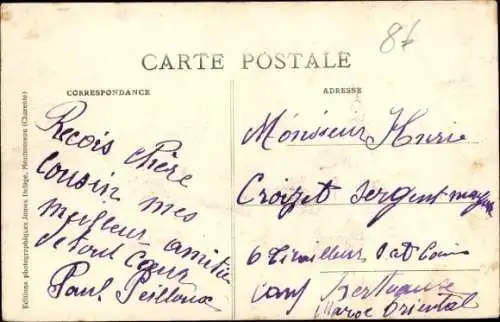 86
CARTE POSTALE
CORRESPONDANCE
ADRESSE
Editions photographiques James Delage, Montmoreau (Charente)
Reçois chère
cousin mes
meilleur amitié
de tout cœur
Paul Peilloux
Monsieur Henrie
Croizet sergent major
6 Tirailleurs
Maroc Oriental